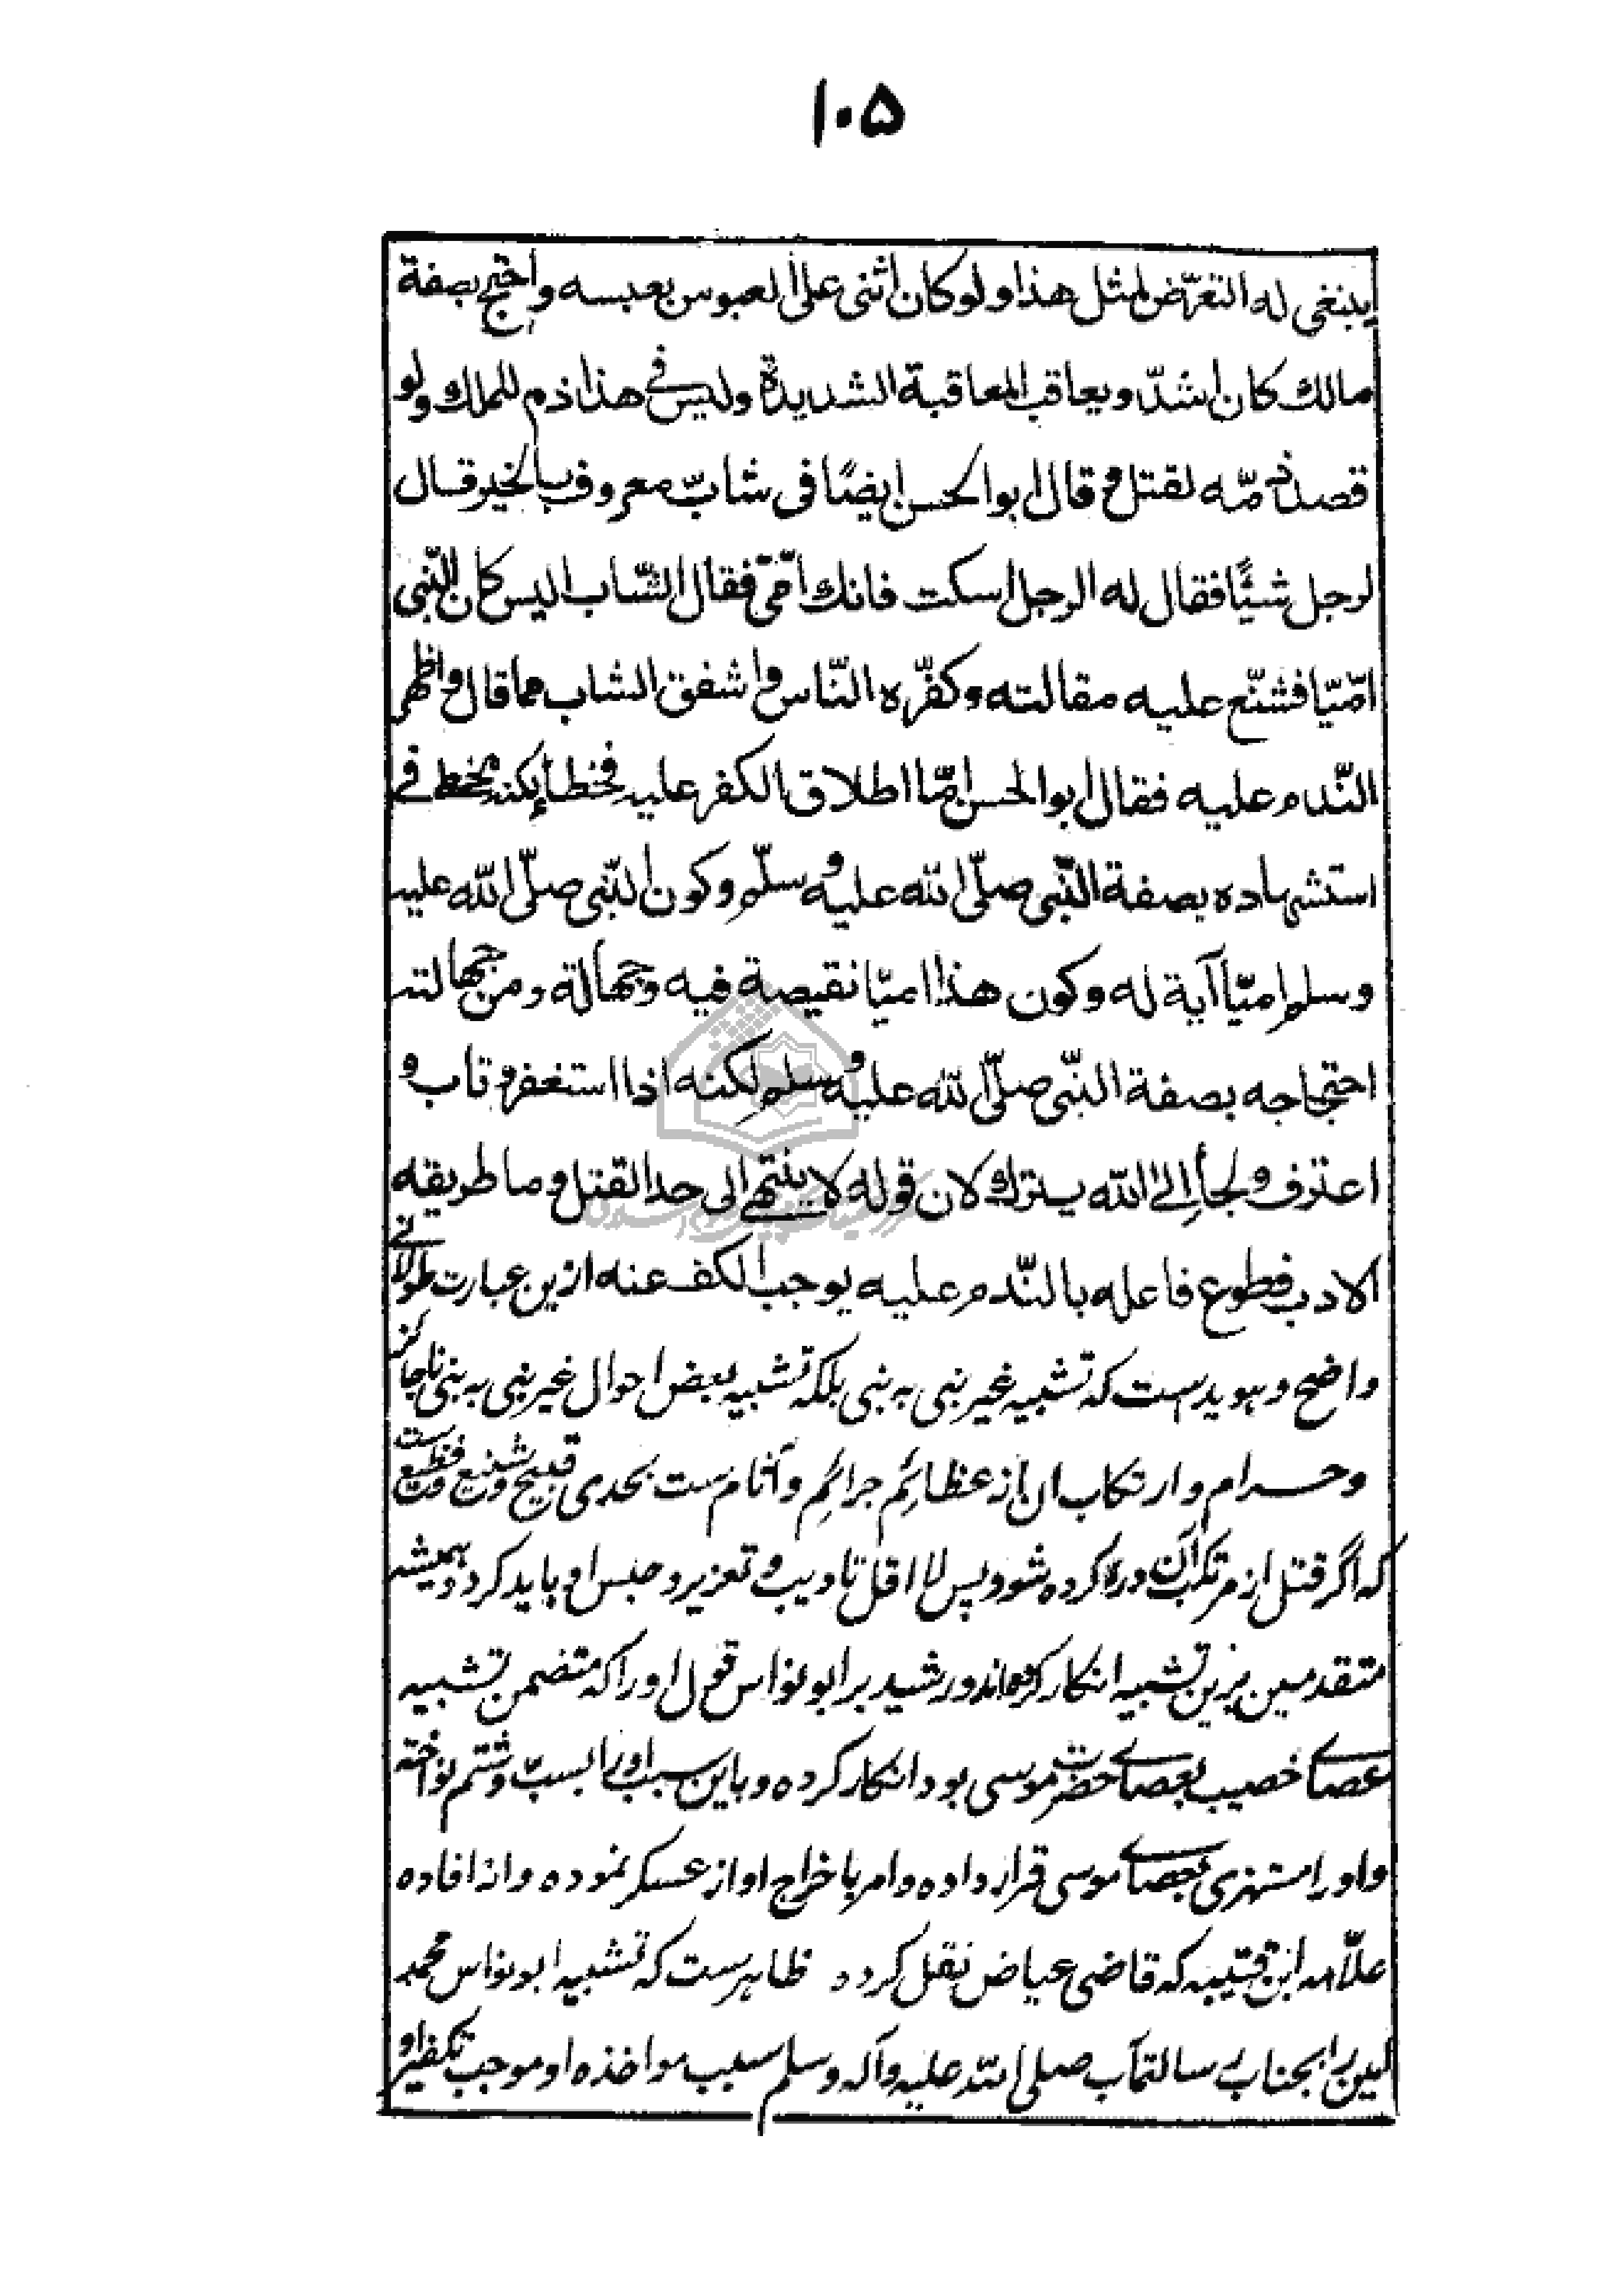 ۱۰۵
ينبغى له التعرّض لمثل هذا ولو كان اثنى على العبوس بعبسه واحتج بصفة
مالك كان اشدّ ويعاقب المعاقبة الشديدة وليس فى هذا ذم للملك ولو
قصد ذمّه لقتل وقال ابو الحسن ايضًا فى شابّ معروف بالخير قال
لرجل شيئًا فقال له الرجل اسكت فانك امّىّ فقال الشّاب اليس كان النّبى
امّيّا فشنّع عليه مقالته وكفّره النّاس واشفق الشاب مما قال واظهر
النّدم عليه فقال ابو الحسن امّا اطلاق الكفر عليه فخطأ لكنه مخطئ فى
استشهاده بصفة النّبى صلّى الله عليه وسلّم وكون النّبى صلّى الله عليه
وسلم امّيّا آية له وكون هذا اميّا نقيصة فيه وجهالة ومن جهالته
احتجاجه بصفة النبّى صلّى الله عليه وسلم لكنه اذا استغفر وتاب و
اعترف ولجأ إلى الله يترك لان قوله لا ينتهى الى حد القتل وما طريقه
الادب فطوع فاعله بالنّدم عليه يوجب الكف عنه ازين عبارت طولانے
واضح و هويدست كه تشبيه غير نبى به نبى بلكه تشبيه بعض احوال غير نبى به نبى ناجائز
وحرام و ارتكاب ان از عظائم جرائم و آثام ست بحدى قبيح و شنيع و فظيع ست
كه اگر قتل از مرتكب آن درء كرده شود پس لا اقل تاديب و تعزير و حبس او بايد كرد و هميشه
متقدمين برين تشبيه انكار كرده‌اند و رشيد بر ابو نواس قول او را كه متضمن تشبيه
عصاے خصيب بعصاے حضرت موسى بود انكار كرده و باين سبب او را بسبّ و شتم نواخته
و او را مستهزى بعصاے موسى قرار داده و امر باخراج او از عسكر نموده و از افاده
علّامه ابن قتيبه كه قاضى عياض نقل كرده ظاهرست كه تشبيه ابو نواس محمد
امين را بجناب رسالتمآب صلى الله عليه و آله و سلم سبب مواخذه او و موجب تكفير او